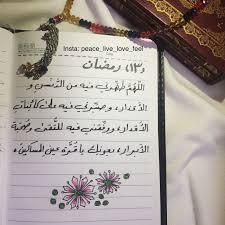 Insta: peace_live_love_feel
١٣، رمضان
اللهم طهرني فيه من الدنس و
الأقذار، و صبرني فيه على كائنات
الأقدار، ووفقني فيه للتقى وصحبة
الأبرار، بعونك يا قرة عين المساكين